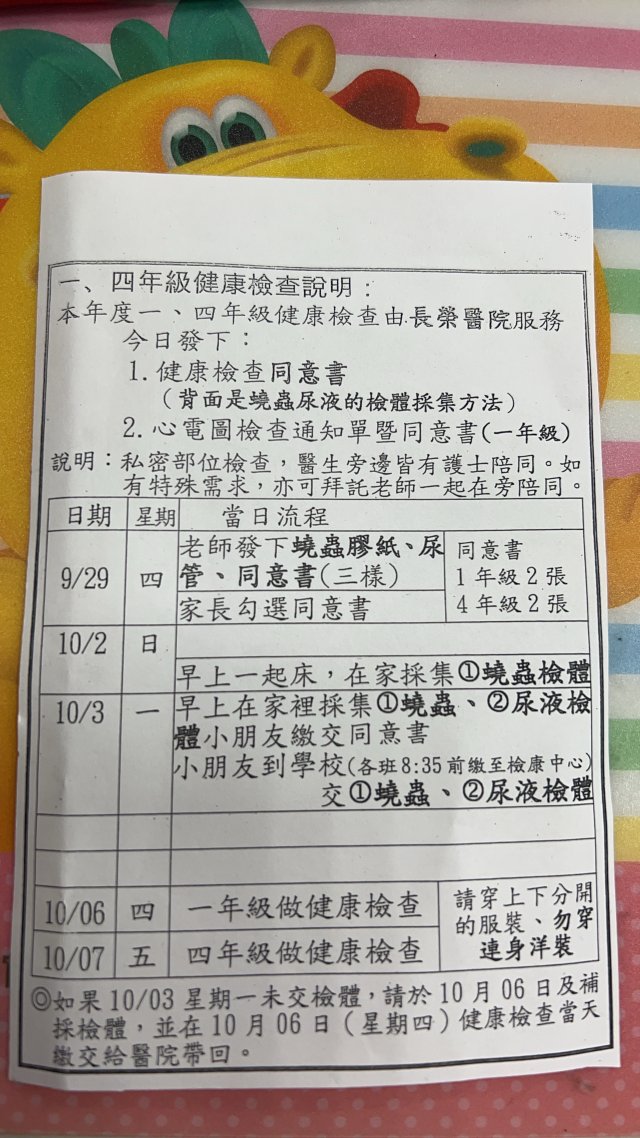 一、四年級健康檢查說明：
本年度一、四年級健康檢查由長榮醫院服務
今日發下：
1.健康檢查同意書
（背面是蟯蟲尿液的檢體採集方法）
2.心電圖檢查通知單暨同意書(一年級)
說明：私密部位檢查，醫生旁邊皆有護士陪同。如
有特殊需求，亦可拜託老師一起在旁陪同。
日期 星期 當日流程
9/29 四 老師發下蟯蟲膠紙、尿
管、同意書(三樣)
家長勾選同意書
同意書
1年級2張
4年級2張
10/2 日
早上一起床，在家採集①蟯蟲檢體
10/3 一 早上在家裡採集①蟯蟲、②尿液檢
體小朋友繳交同意書
小朋友到學校(各班8:35前繳至檢康中心)
交①蟯蟲、②尿液檢體
10/06 四 一年級做健康檢查
10/07 五 四年級做健康檢查
請穿上下分開
的服裝、勿穿
連身洋裝
◎如果10/03星期一未交檢體，請於10月06日及補
採檢體，並在10月06日（星期四）健康檢查當天
繳交給醫院帶回。